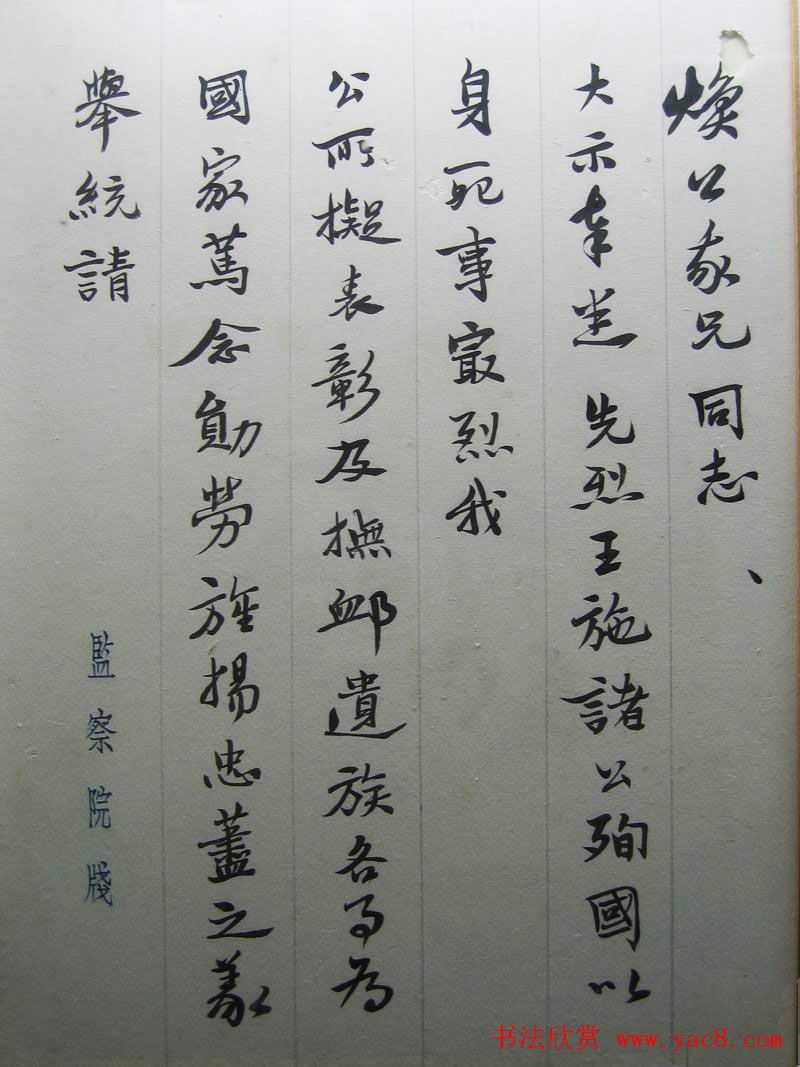 煥公我兄同志
大示奉悉先烈王施諸公殉國以
身死事最烈我
公所擬表彰及撫卹遺族各事為
國家篤念勛勞旌揚忠藎之義
舉統請
監察院牋
书法欣赏 www.yac8.com